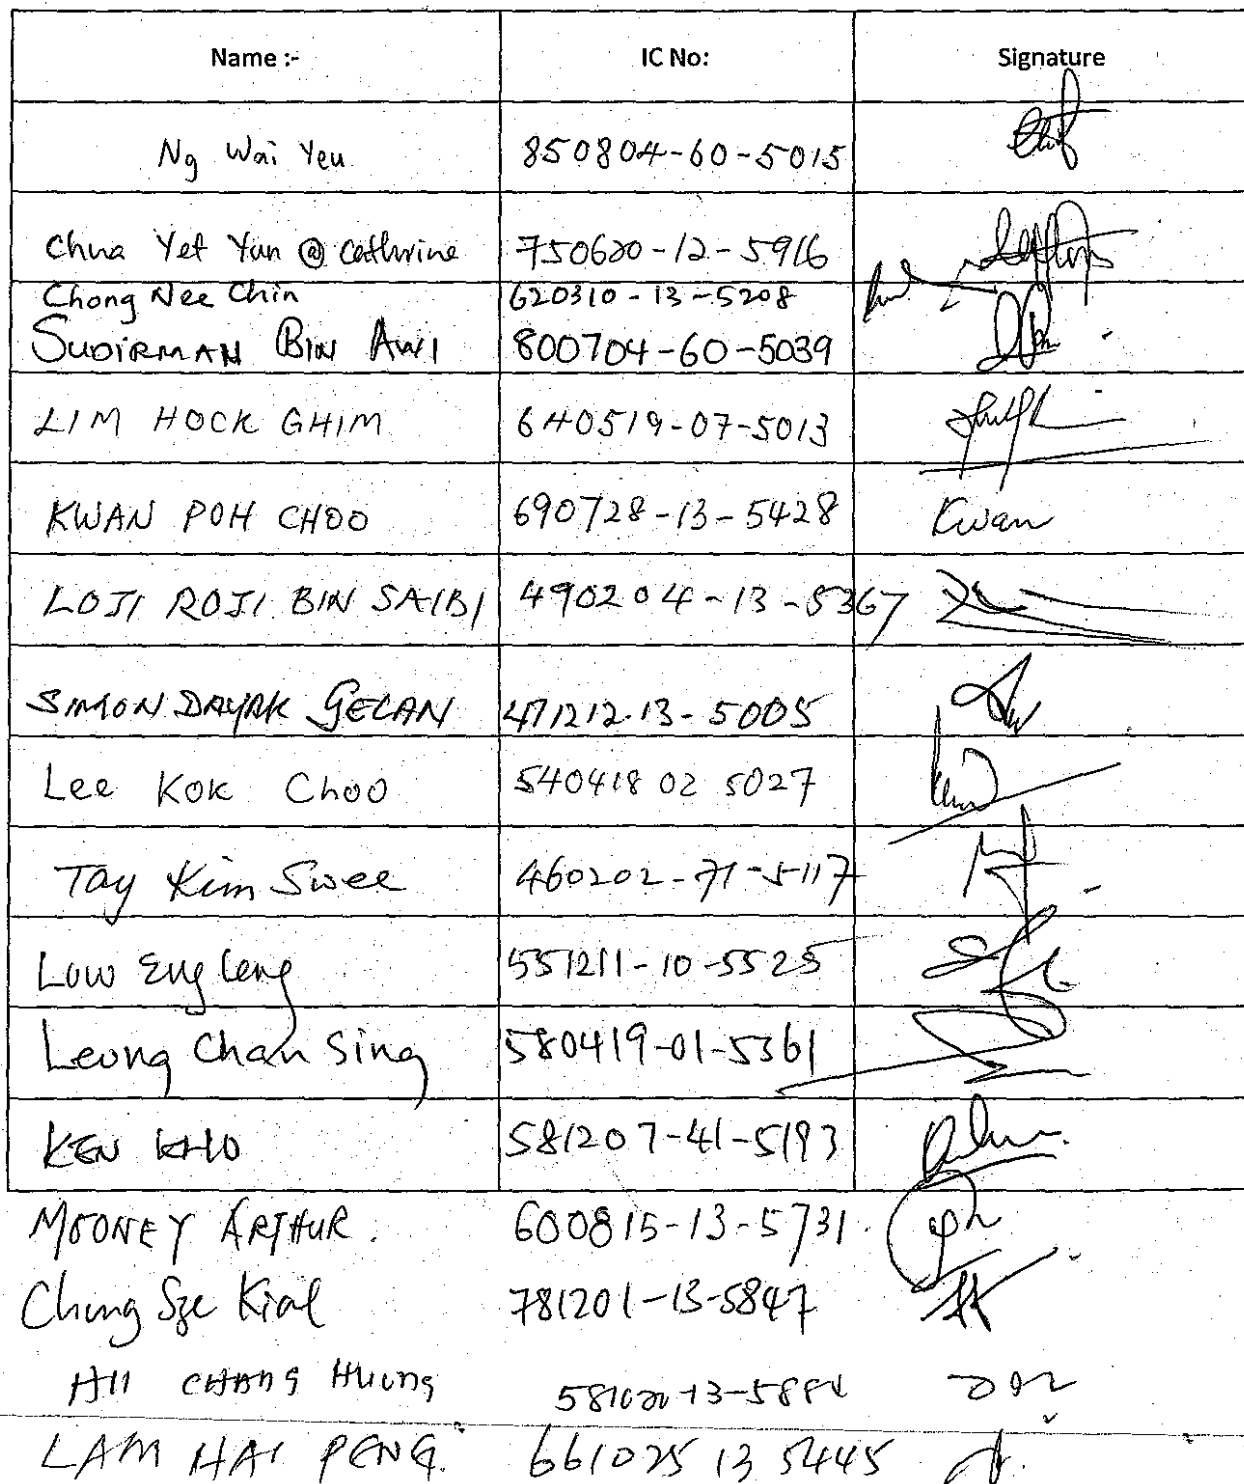 Name :- IC No: Signature
Ng Wai Yeu 850804-60-5015
Chua Yet Yun @ Cathrine 750620-12-5916
Chong Nee Chin 620310-13-5208
SUDIRMAN BIN AWI 800704-60-5039
LIM HOCK GHIM 640519-07-5013
KWAN POH CHOO 690728-13-5428 Kwan
LOJI ROJI BIN SAIBI 490204-13-5367
SIMON DAYAK GELAN 471212-13-5005
Lee Kok Choo 540418 02 5027
Tay Kim Swee 460202-71-5117
Low Eng Leng 551211-10-5525
Leong Chan Sing 580419-01-5361
KEN KHO 581207-41-5193
MOONEY ARTHUR. 600815-13-5731.
Chung Sze Kial 781201-13-5847
HII CHANG HUONG
LAM HAI PENG. 661025 13 5445